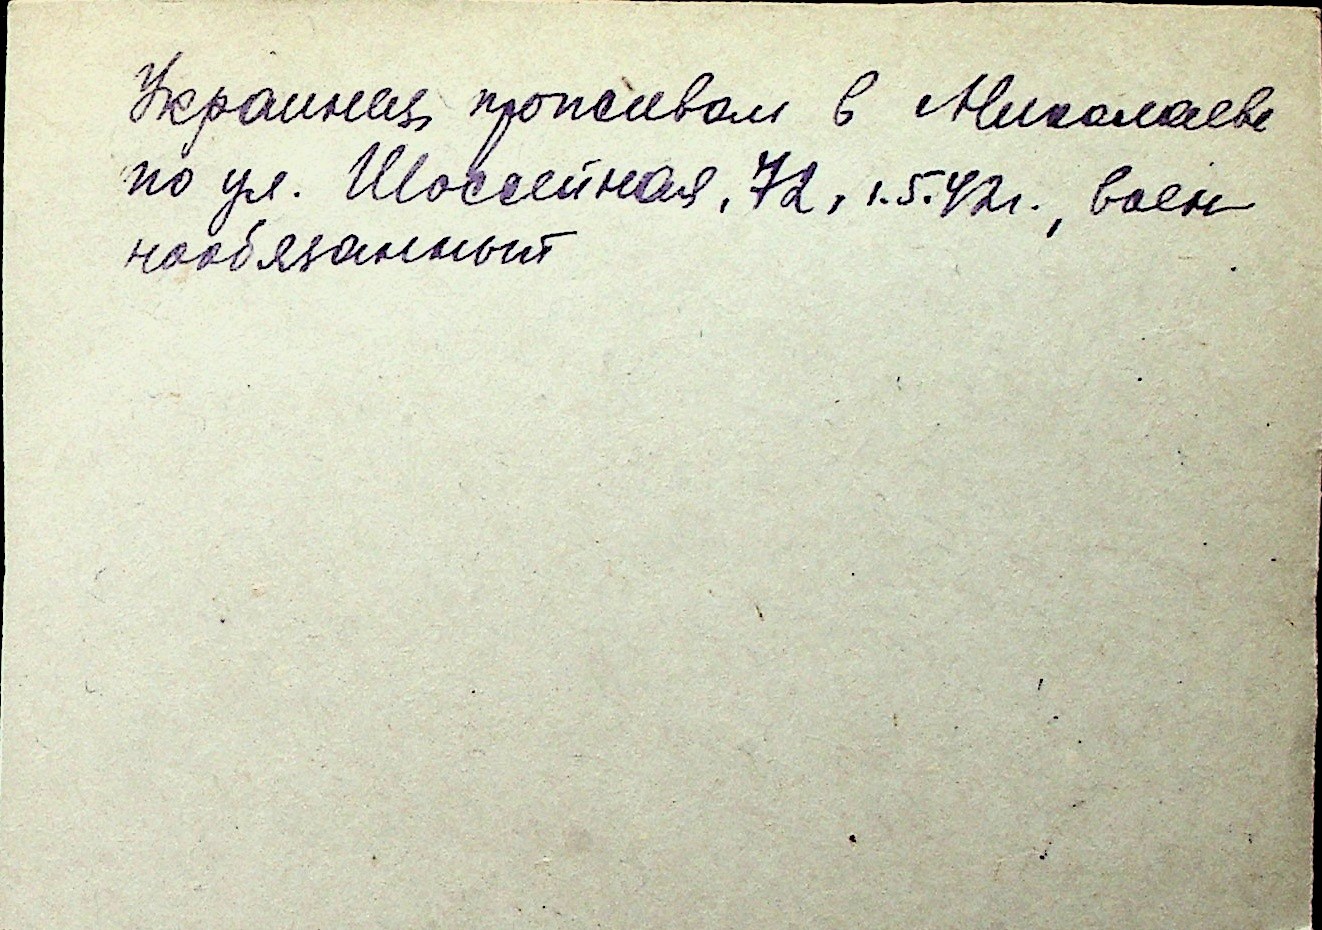 Украинец, проживал в Николаеве
по ул. Шоссейная, 72, 1.5.42г., воен
нообязанный